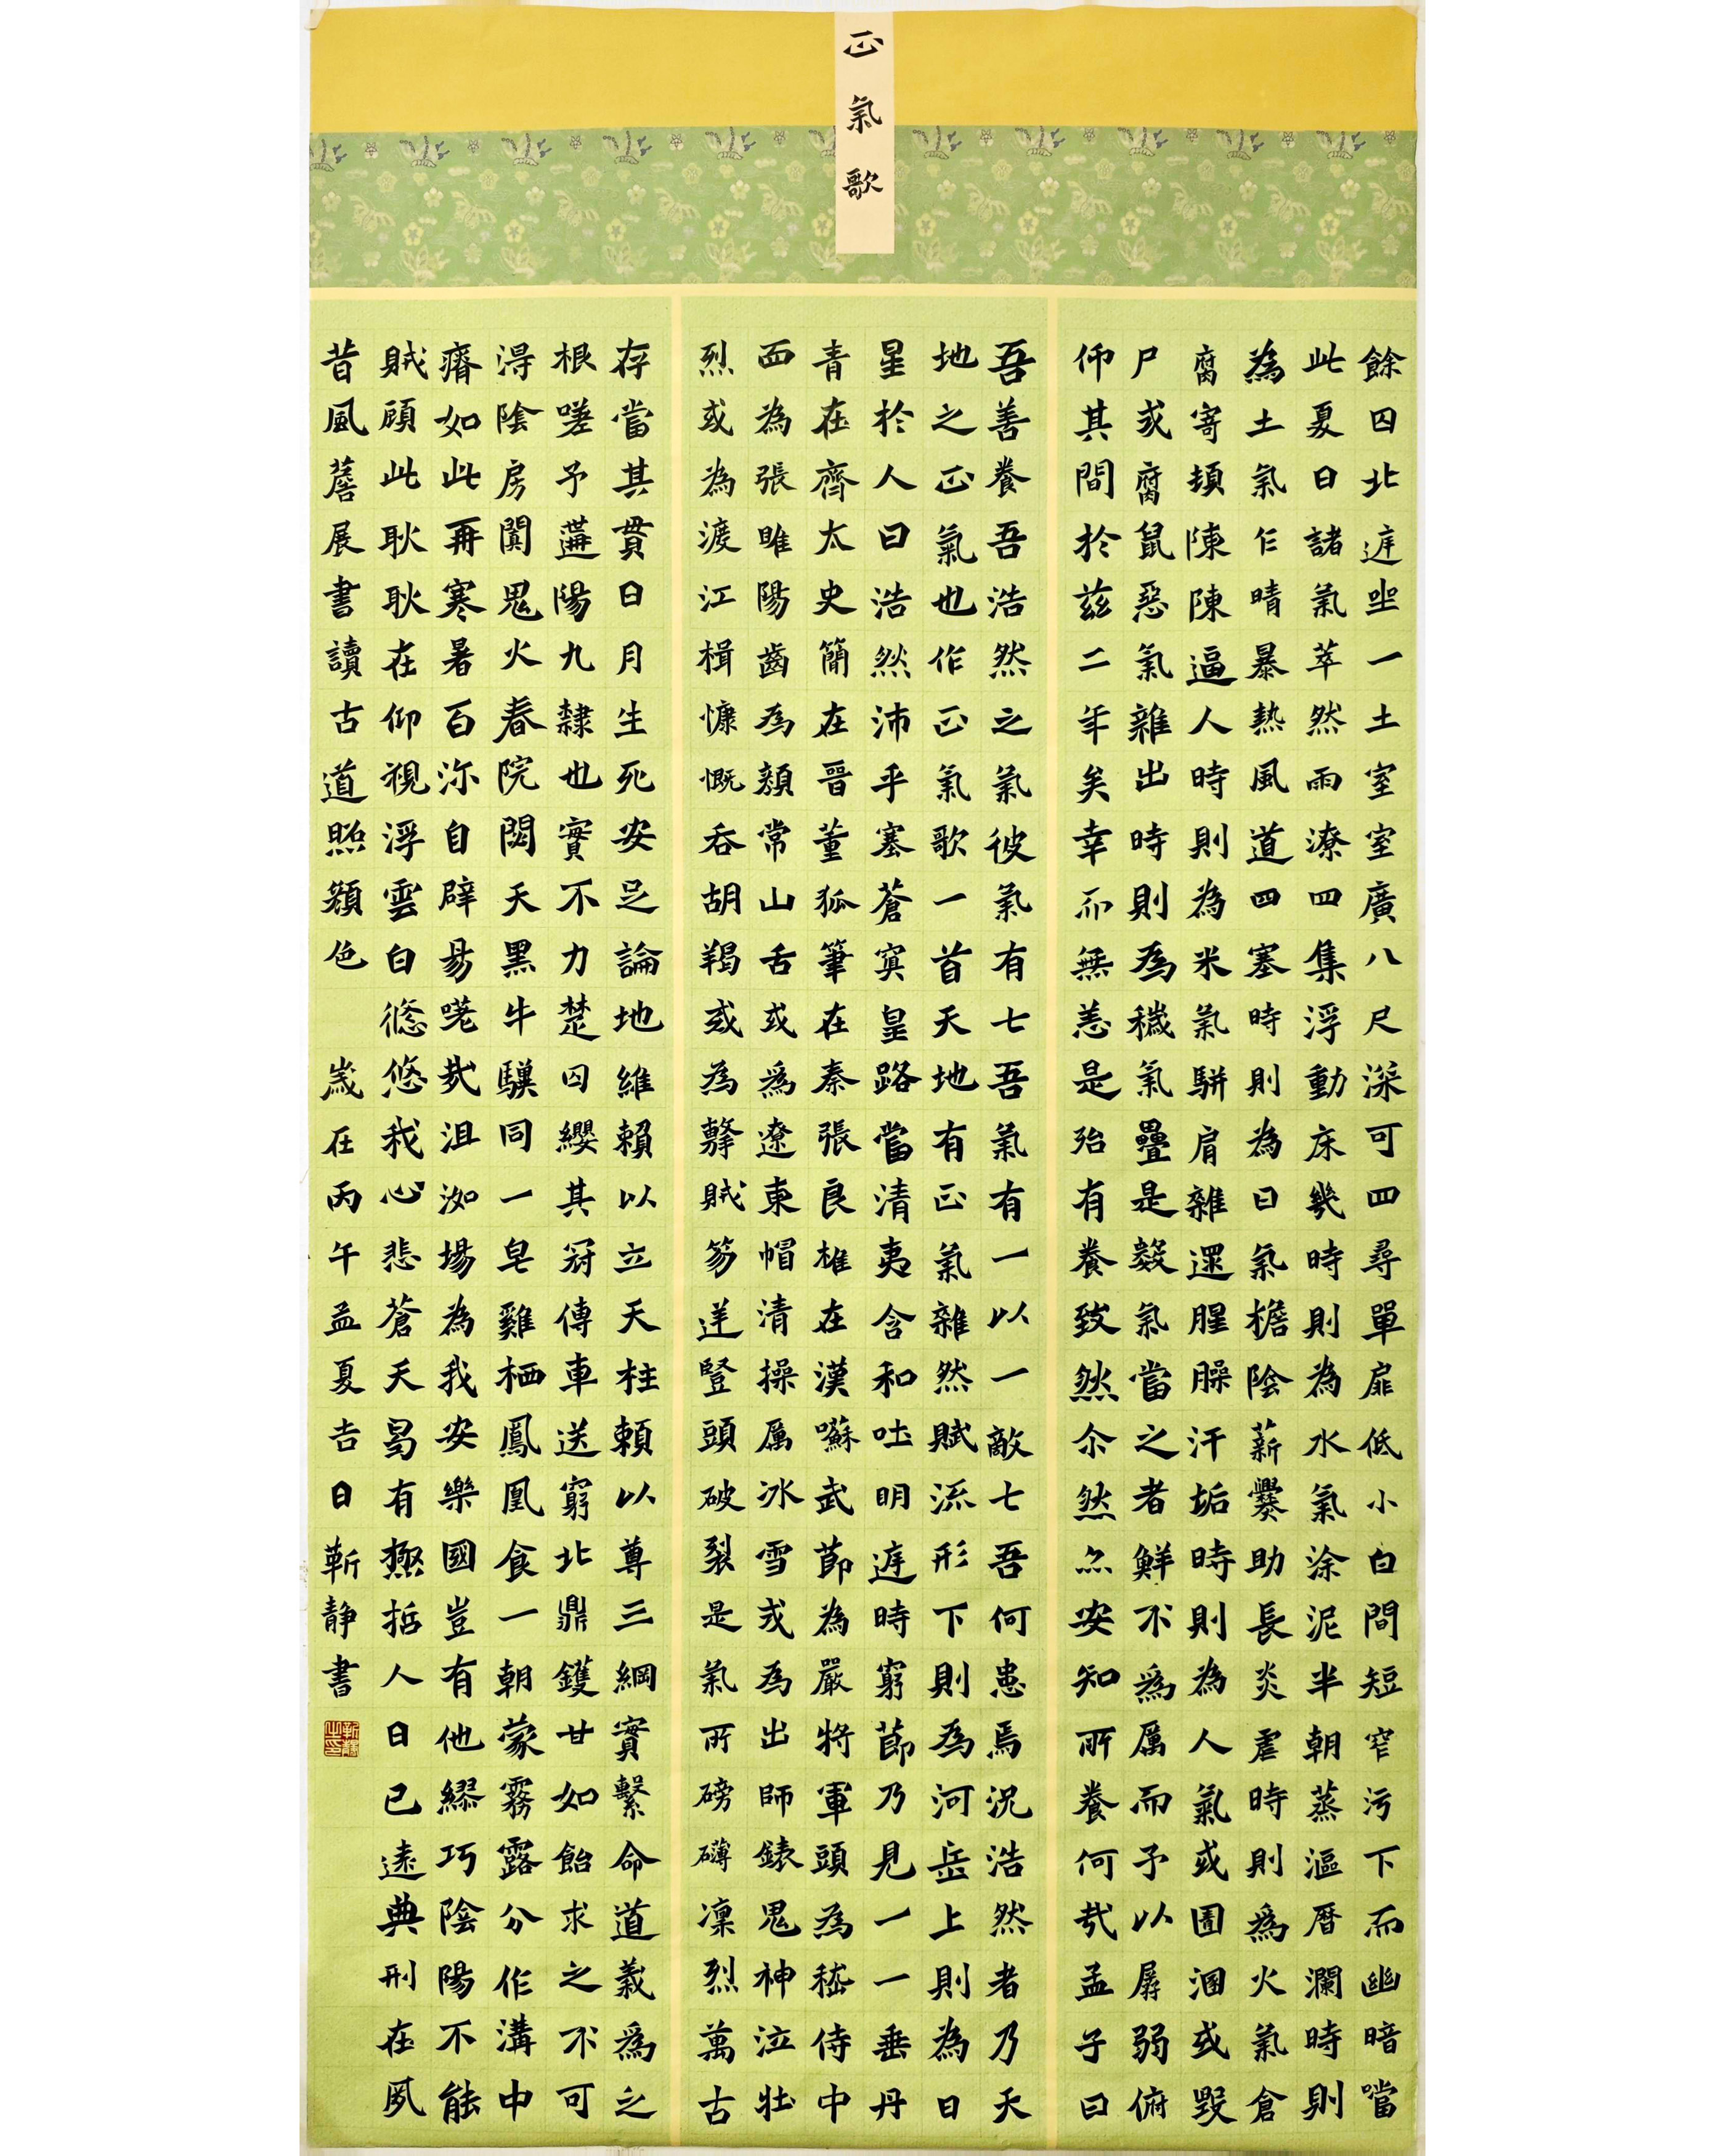 正氣歌
餘囚北庭坐一土室室廣八尺深可四尋單扉低小白間短窄污下而幽暗噹
此夏日諸氣萃然雨潦四集浮動床幾時則為水氣涂泥半朝蒸漚曆瀾時則
為土氣乍晴暴熱風道四塞時則為日氣檐陰薪爨助長炎虐時則爲火氣倉
腐寄頓陳陳逼人時則為米氣駢肩雜遝腥臊汗垢時則為人氣或圊溷或毀
尸或腐鼠惡氣雜出時則為穢氣疊是數氣當之者鮮不爲厲而予以孱弱俯
仰其間於茲二年矣幸而無恙是殆有養致然尒然亦安知所養何哉孟子曰
吾善養吾浩然之氣彼氣有七吾氣有一以一敵七吾何患焉況浩然者乃天
地之正氣也作正氣歌一首天地有正氣雜然賦流形下則為河岳上則為日
星於人曰浩然沛乎塞蒼冥皇路當清夷含和吐明庭時窮節乃見一一垂丹
青在齊太史簡在晉董狐筆在秦張良椎在漢囌武節為嚴將軍頭為嵇侍中
面為張睢陽齒為顏常山舌或爲遼東帽清操厲冰雪或為出師錶鬼神泣壯
烈或為渡江楫慷慨吞胡羯或為擊賊笏逆豎頭破裂是氣所磅礴凜烈萬古
存當其貫日月生死安足論地維賴以立天柱賴以尊三綱實繫命道義爲之
根嗟予遘陽九隸也實不力楚囚纓其冠傳車送窮北鼎鑊甘如飴求之不可
得陰房闃鬼火春院閟天黑牛驥同一皂雞栖鳳凰食一朝蒙霧露分作溝中
瘠如此再寒暑百沴自辟易嗟哉沮洳場為我安樂國豈有他繆巧陰陽不能
賊顧此耿耿在仰視浮雲白悠悠我心悲蒼天曷有極哲人日已遠典刑在夙
昔風簷展書讀古道照顏色 歲在丙午孟夏吉日靳靜書